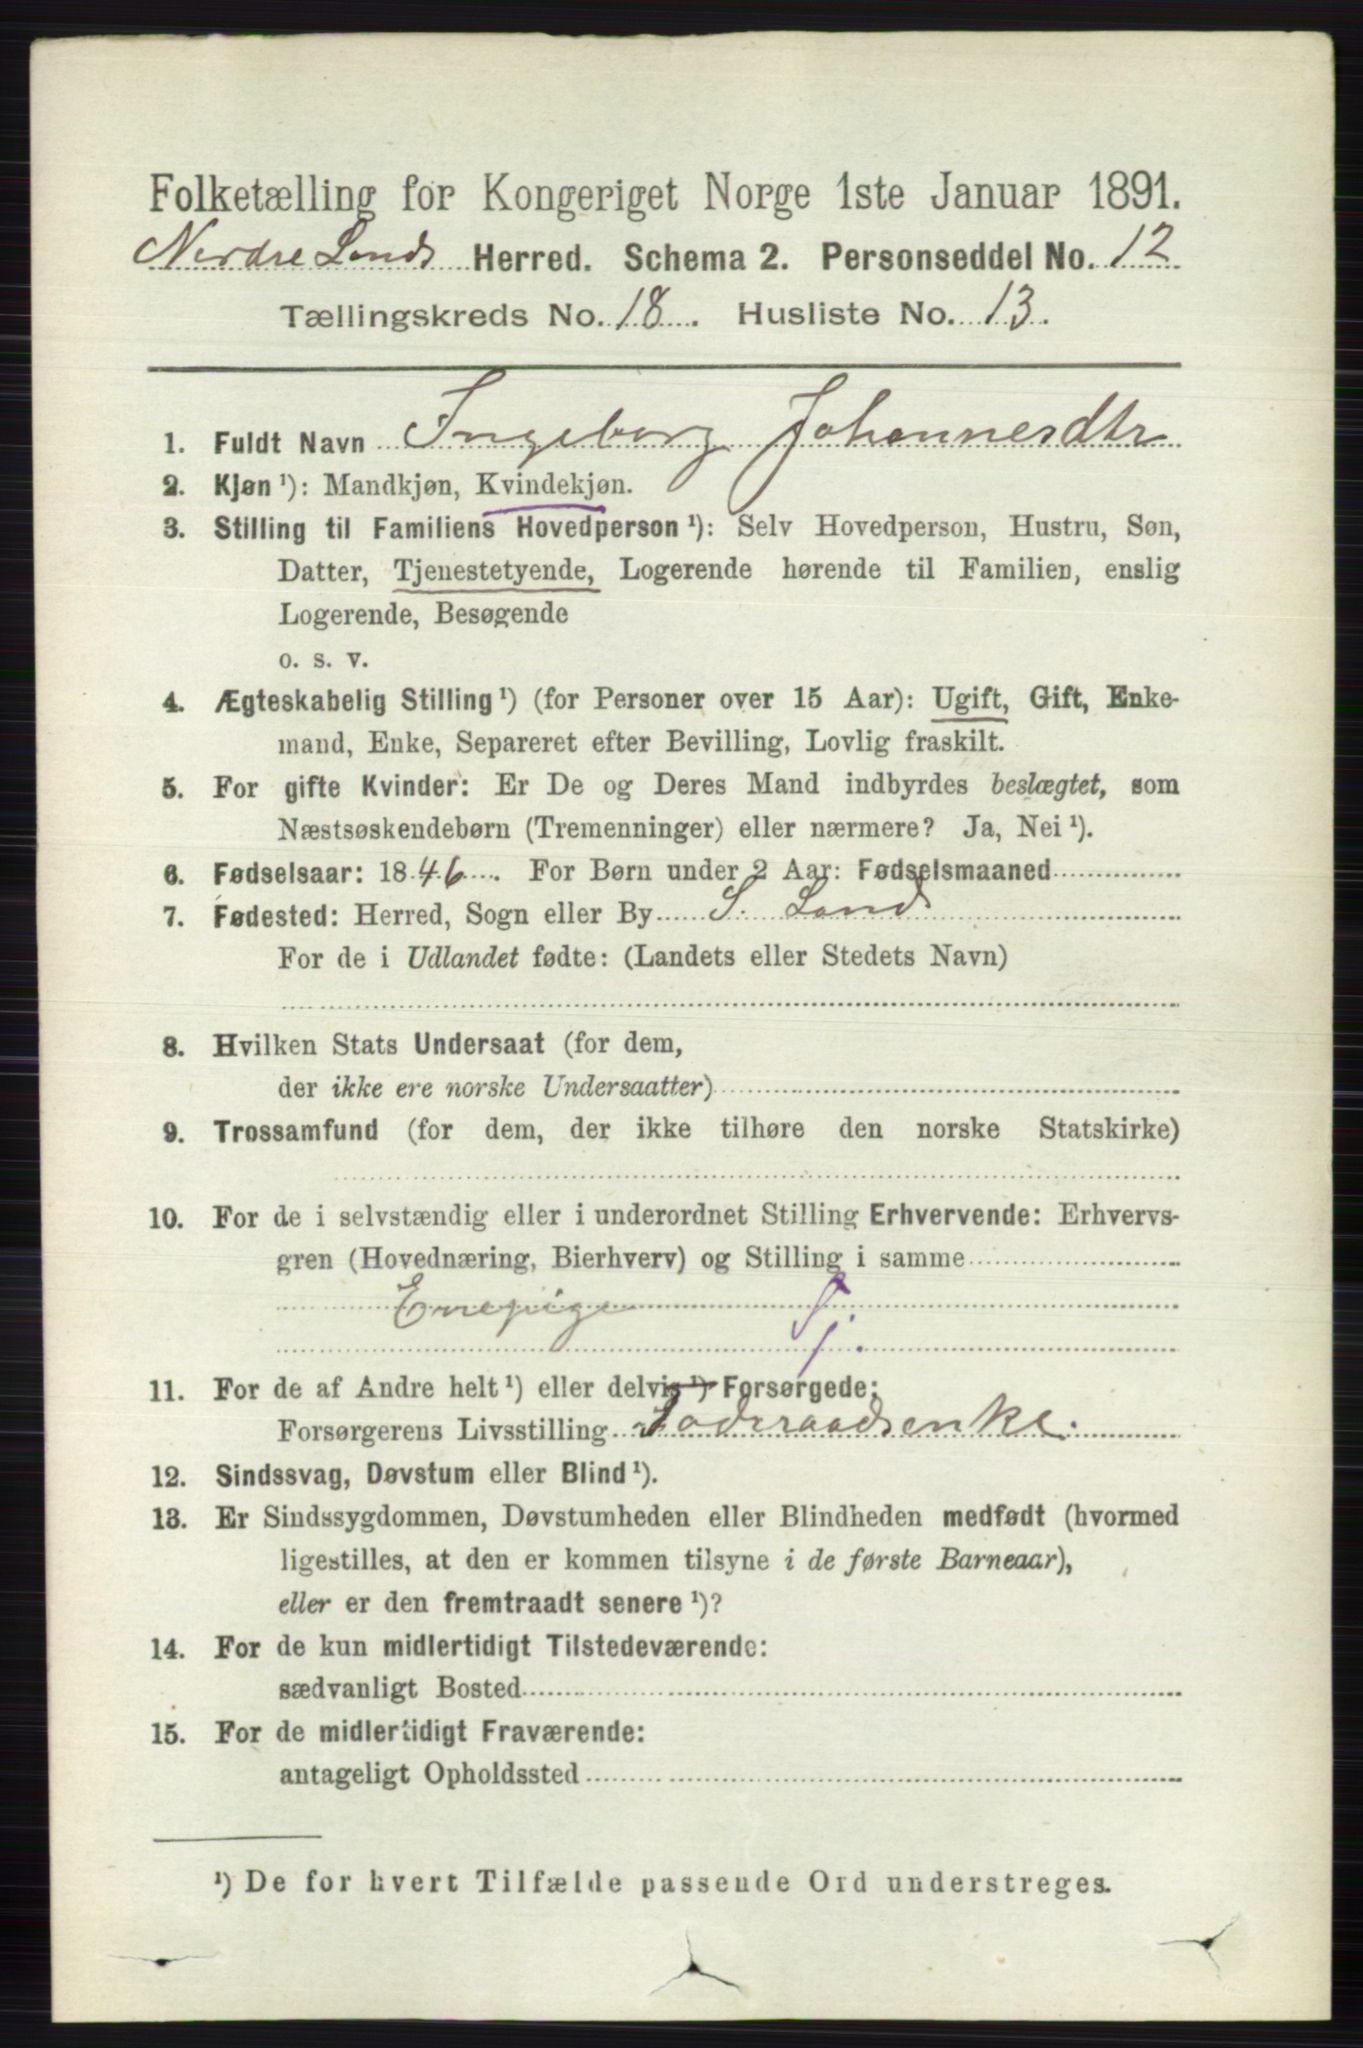 Folketælling for Kongeriget Norge 1ste Januar 1891.
Nordre Lands Herred. Schema 2. Personseddel No. 12
Tællingskreds No. 18. Husliste No. 13.
1. Fuldt Navn Ingeborg Johannesdtr
2. Kjøn ¹): Mandkjøn, Kvindekjøn.
3. Stilling til Familiens Hovedperson ¹): Selv Hovedperson, Hustru, Søn,
Datter, Tjenestetyende, Logerende hørende til Familien, enslig
Logerende, Besøgende
o. s. v.
4. Ægteskabelig Stilling ¹) (for Personer over 15 Aar): Ugift, Gift, Enke-
mand, Enke, Separeret efter Bevilling, Lovlig fraskilt.
5. For gifte Kvinder: Er De og Deres Mand indbyrdes beslægtet, som
Næstsøskendebørn (Tremenninger) eller nærmere? Ja, Nei ¹).
6. Fødselsaar: 1846. For Børn under 2 Aar: Fødselsmaaned
7. Fødested: Herred, Sogn eller By S. Land
For de i Udlandet fødte: (Landets eller Stedets Navn)
8. Hvilken Stats Undersaat (for dem,
der ikke ere norske Undersaatter)
9. Trossamfund (for dem, der ikke tilhøre den norske Statskirke)
10. For de i selvstændig eller i underordnet Stilling Erhvervende: Erhvervs-
gren (Hovednæring, Bierhverv) og Stilling i samme
11. For de af Andre helt ¹) eller delvis ¹) Forsørgede:
Forsørgerens Livsstilling Foderaadsenke.
12. Sindssvag, Døvstum eller Blind ¹).
13. Er Sindssygdommen, Døvstumheden eller Blindheden medfødt (hvormed
ligestilles, at den er kommen tilsyne i de første Barneaar),
eller er den fremtraadt senere ¹)?
14. For de kun midlertidigt Tilstedeværende:
sædvanligt Bosted
15. For de midlertidigt Fraværende:
antageligt Opholdssted
¹) De for hvert Tilfælde passende Ord understreges.